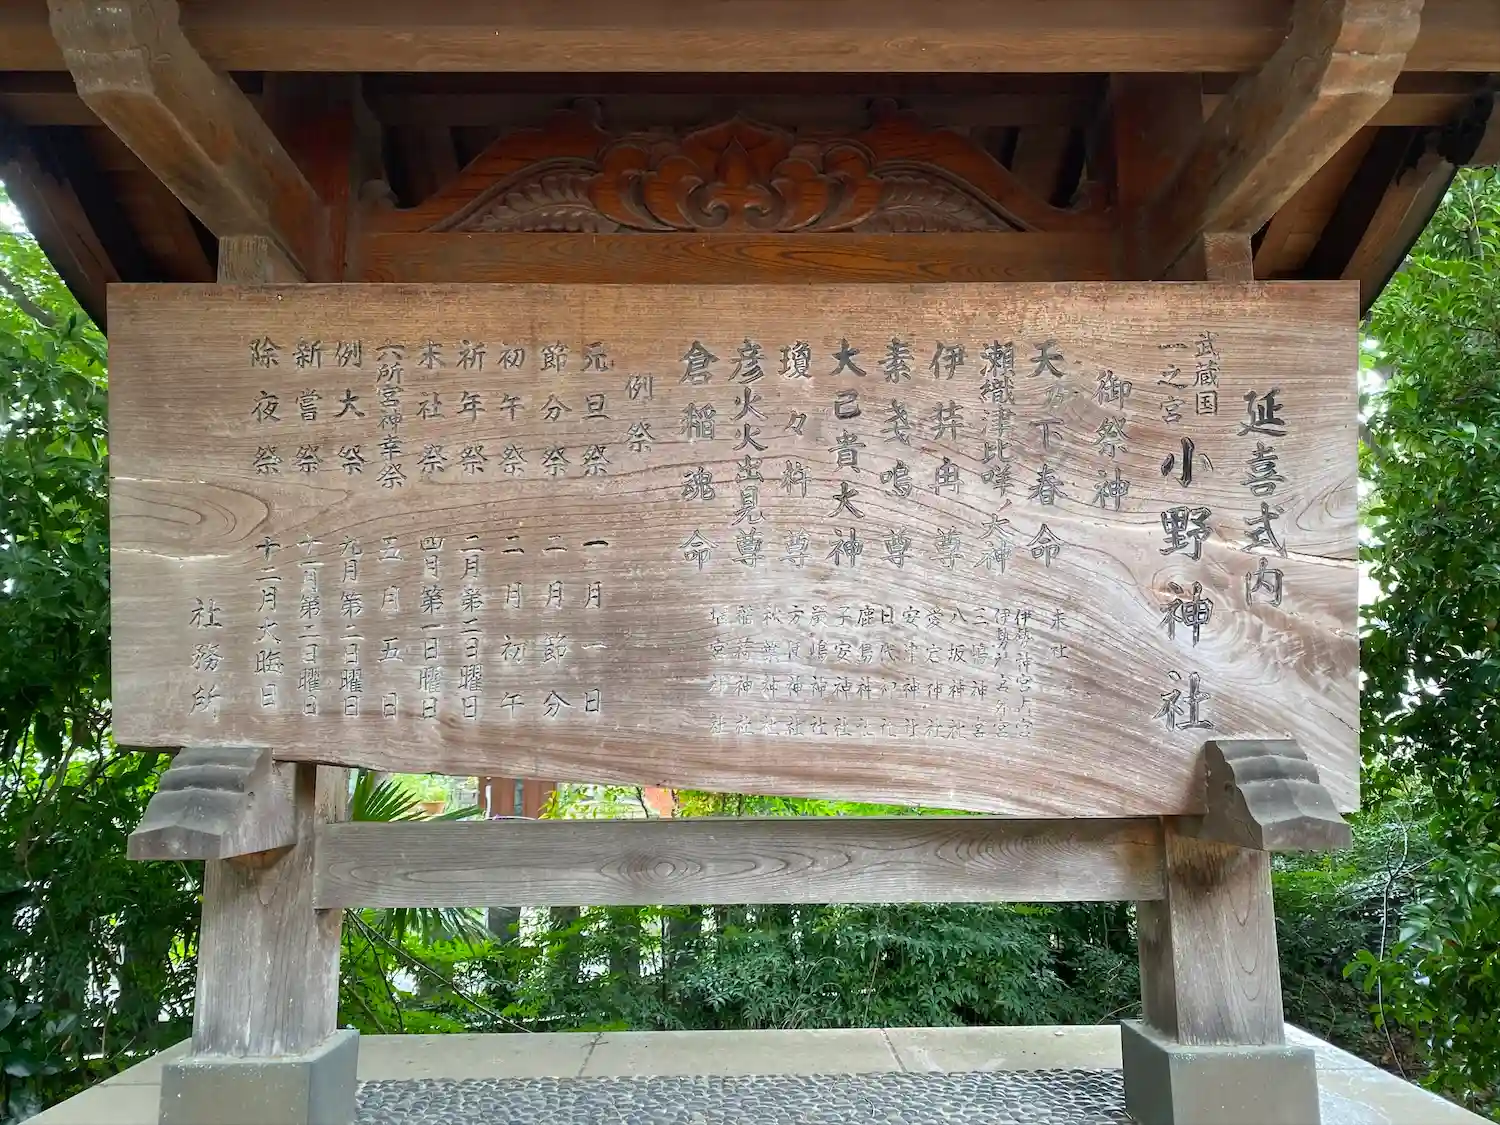 延喜式内
武蔵国
一之宮
小野神社
御祭神
天乃下春命
瀬織津比咩ノ大神
伊弉冉尊
素戔嗚尊
大己貴大神
瓊々杵尊
彦火火出見尊
倉稲魂命
末社
三嶋神宮
八坂神社
愛宕神社
安津神社
日代神社
鹿島神社
子安神社
厳嶋神社
秋葉神社
稲荷神社
堰宮神社
例祭
元旦祭 一月一日
節分祭 二月節分
初午祭 二月初午
祈年祭 二月第二日曜日
末社祭 四月第一日曜日
六所宮神幸祭 五月五日
例大祭 九月第二日曜日
新嘗祭 十一月第二日曜日
除夜祭 十二月大晦日
社務所